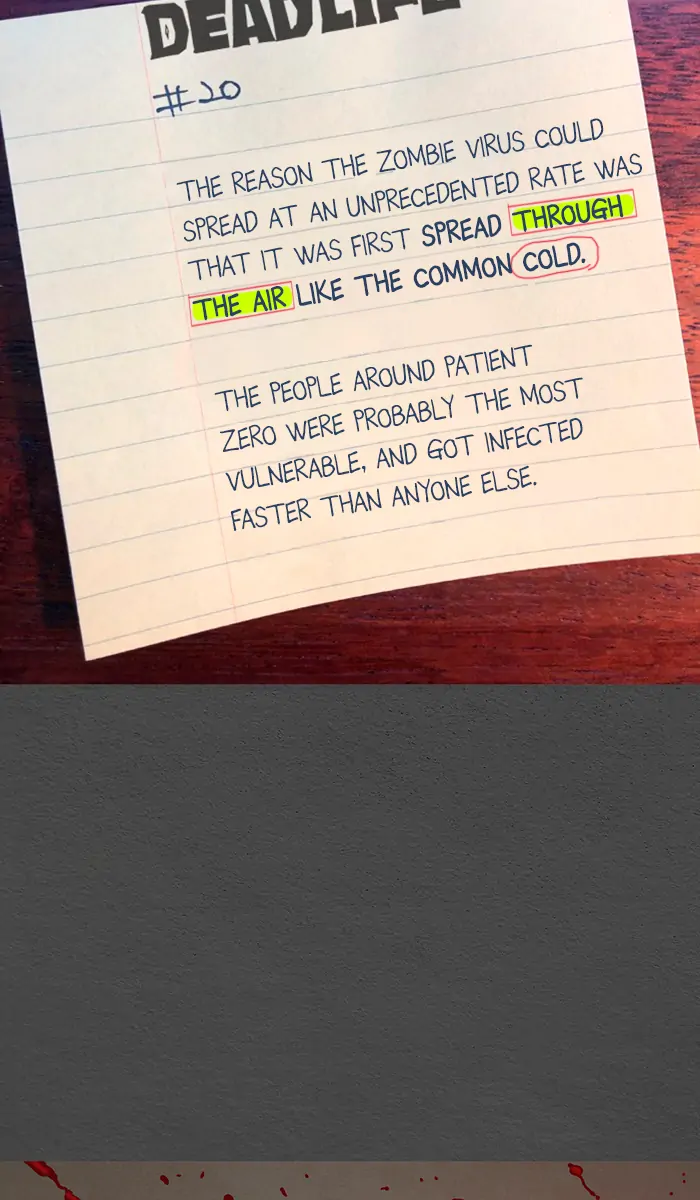 DEADLIFE
#20
THE REASON THE ZOMBIE VIRUS COULD
SPREAD AT AN UNPRECEDENTED RATE WAS
THAT IT WAS FIRST SPREAD THROUGH
THE AIR LIKE THE COMMON COLD.
THE PEOPLE AROUND PATIENT
ZERO WERE PROBABLY THE MOST
VULNERABLE, AND GOT INFECTED
FASTER THAN ANYONE ELSE.